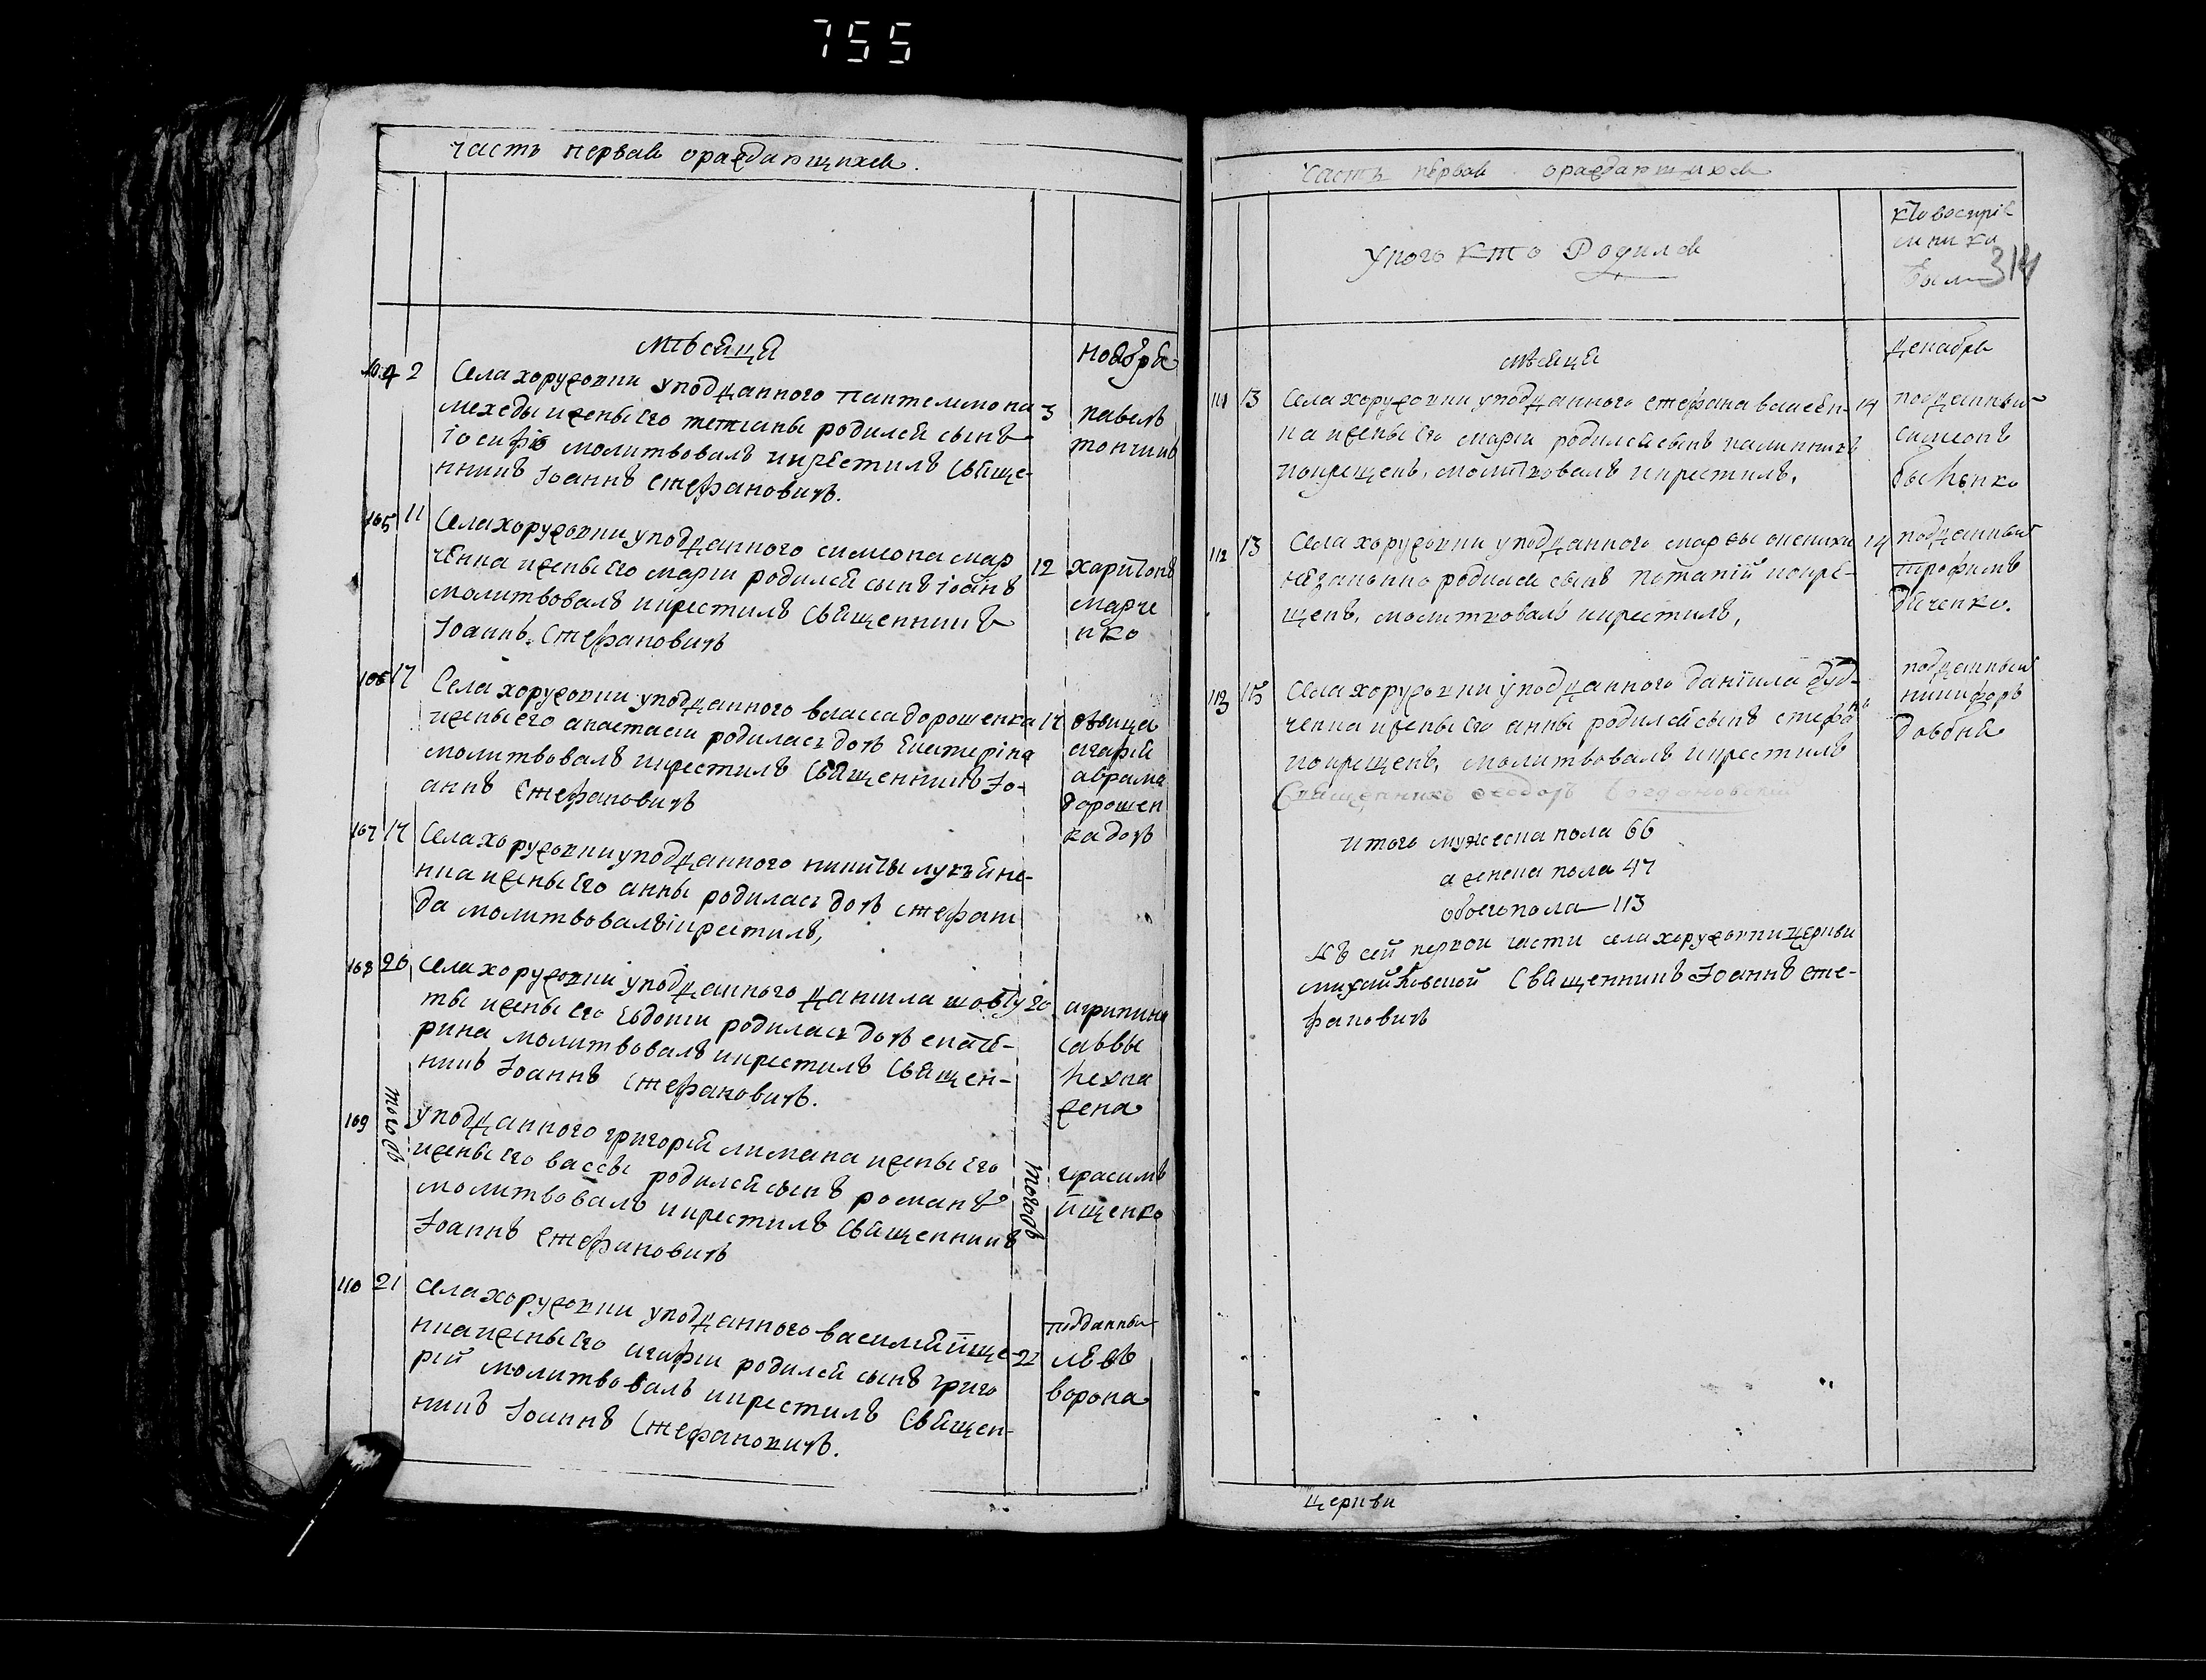 755
Часть первая ораждающихся.
Мѣсяця
Ноября
104 2 Села хоружовки уподданного Пантелимона
мехеды ижены его тетяны родился сынъ
іосифъ молитвовалъ икрестилъ Свяще-
нникъ Іоаннъ Стефановичъ.
3 павелъ
105 11 Села хоружовки уподданного симиона мар
ченка ижены его маріи родился сынъ іоанъ
молитвовалъ икрестилъ Священникъ
Іоаннъ Стефановичъ
12 харитонъ
марче
нко
106 17 Села хоружовки уподданного власса дорошенка
ижены его анастасіи родилась дочъ Екатеріна
молитвовалъ икрестилъ Священникъ Іо-
аннъ Стефановичъ
17 дѣвица
агафія
аврама
дорошен
ка дочъ
107 17 Села хоружовки уподданного никиты
нка ижены его анны родилась дочъ стефани
да молитвовалъ ікрестилъ,
108 20 Села хоружовки уподданного данила шовгу
ты ижены его Евдокіи родилась дочъ екате-
рина молитвовалъ икрестилъ Священ-
никъ Іоаннъ Стефановичъ.
20 агрипина
саввы
жена
109 тогождъ уподданного григорія лимана ижены его
ижены его вассы родился сынъ романъ
молитвовалъ икрестилъ Священникъ
Іоаннъ Стефановичъ
тогождъ герасимъ
ищенко
110 21 Села хоружовки уподданного василія ище-
нка ижены его агафіи родился сынъ григо
рій молитвовалъ икрестилъ Священ-
никъ Іоаннъ Стефановичъ.
21 подданный
левъ
ворона
Часть первая ораждающихся
Укого кто Родился
Кто воспріе
мники
были
314
мѣсяця
декабря
111 13 Села хоружовки уподданного стефана василен-
ка ижены его маріи родился сынъ калинникъ
покрещенъ, молитвовалъ икрестилъ.
14 подданный
симеонъ
112 13 Села хоружовки уподданного
незаконно родился сынъ потапій покре-
щенъ, молитвовалъ икрестилъ,
14 подданный
трофимъ
дяченко.
113 15 Села хоружовки уподданного даніила дуд-
ченка ижены его анны родился сынъ стефанъ
покрещенъ, молитвовалъ икрестилъ
Священникъ Феодоръ Богдановскій
подданный
никифоръ
довбня
Итого мужеска пола 66
а женска пола 47
обоего пола 113
Къ сей первой части села хоружовки церкви
михайловской Священникъ Іоаннъ Сте-
фановичъ
церкви